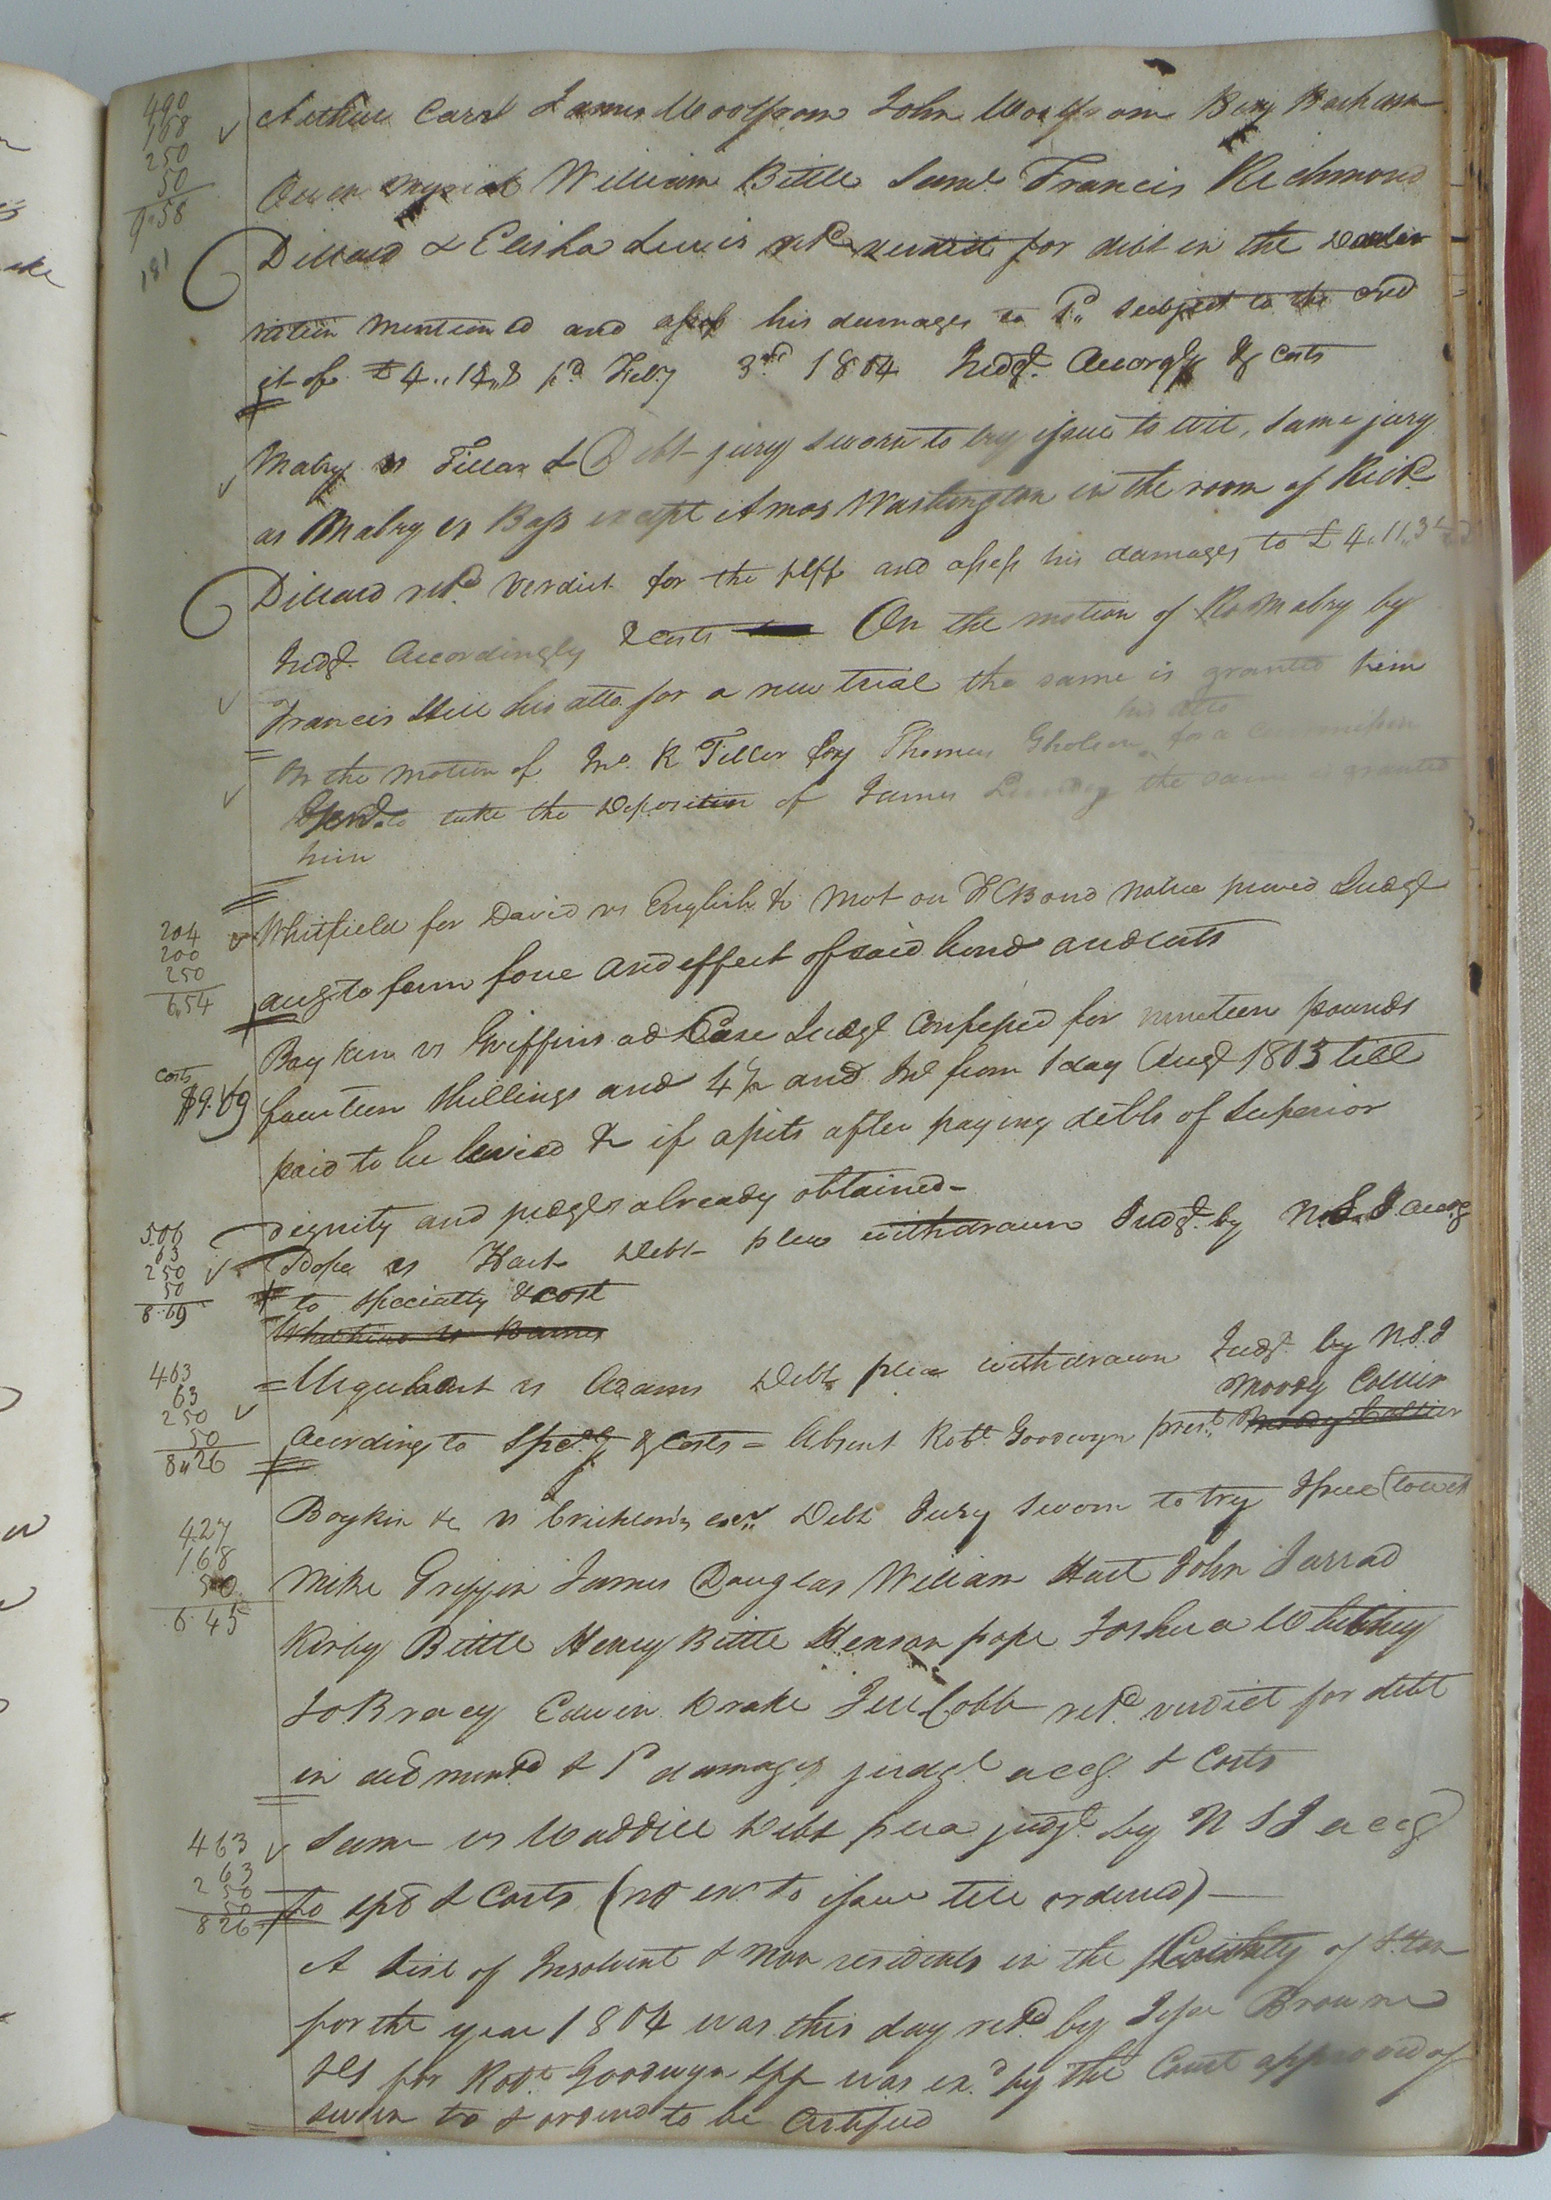 490
168
250
50
9.58
181
Arthur Carr James Woolfrom John Benj Barham
Owen Myrick William Bittle Saml Francis Richmond
Dillard & Elisha Lewis retd verdict for debt in the declar
ration mentioned and assess his damages to 1d subject to the cred
it of £4..14..8 pd Feby 3rd 1804 Judgt. Accordg & Costs
Mabry vs Fillar & Debt jury sworn to try issue to wit, same jury
as Mabry vs Bass except Amos Washington in the room of Richd
Dillard retd Verdict for the plff and assess his damages to £4..11..3
Judgt. Accordingly & costs On the motion of Ro Mabry by
Francis Hill his atto. for a new trial the same is granted him
On the motion of Jno. R Filler by Thomas Gholson his atto for a Commission
to take the Deposition of James the same granted
him
204
200
250
6.54
Whitfield for David vs English & mot on Bond notice proved Judgt
accg. to form force and effect of said bond and costs
Costs
$9.69
Boykin vs Griffins ad Case Judgt Confessed for nineteen pounds
fourteen Shillings and 4½ and Int from 1 day Augt 1803 till
paid to be levied &c if assets after paying debts of Superior
dignity and judgts already obtained-
506
63
250
50
8.69
Pope vs Hart Debt plea withdrawn Judgt. by N.S.J. accg
to specialty & cost
463
63
250
50
8..26
Urquhart vs Adams Debt plea withdrawn Judgt. by N.S.J
Moody Collier
According to Specty & Costs = Absent Robt. Goodwyn prest. Moody Collier
427
168
50
6.45
Boykin &c vs Crichlow's exor Debt Jury sworn to try Issue (to wit
Mike Griffin James Douglas William Hart John Jarrad
Kirby Bittle Henry Bittle Henson pope Joshua Whitney
Jo Bracy Edwin Drake Cobb retd verdict for debt
in decn mentd & 1d damages judgt. accg. & Costs
463
63
250
50
826
Same vs Waddill Debt plea judgt. by N S J accg
to spt & Costs (no exn to issue till ordered)—
A List of Insolvent & non residents in the County of S.ton
for the year 1804 was this day retd by Jesse Browne
DS for Robt. Goodwyn Shff was exd by the Court approved of
sworn to & ordered to be Certified